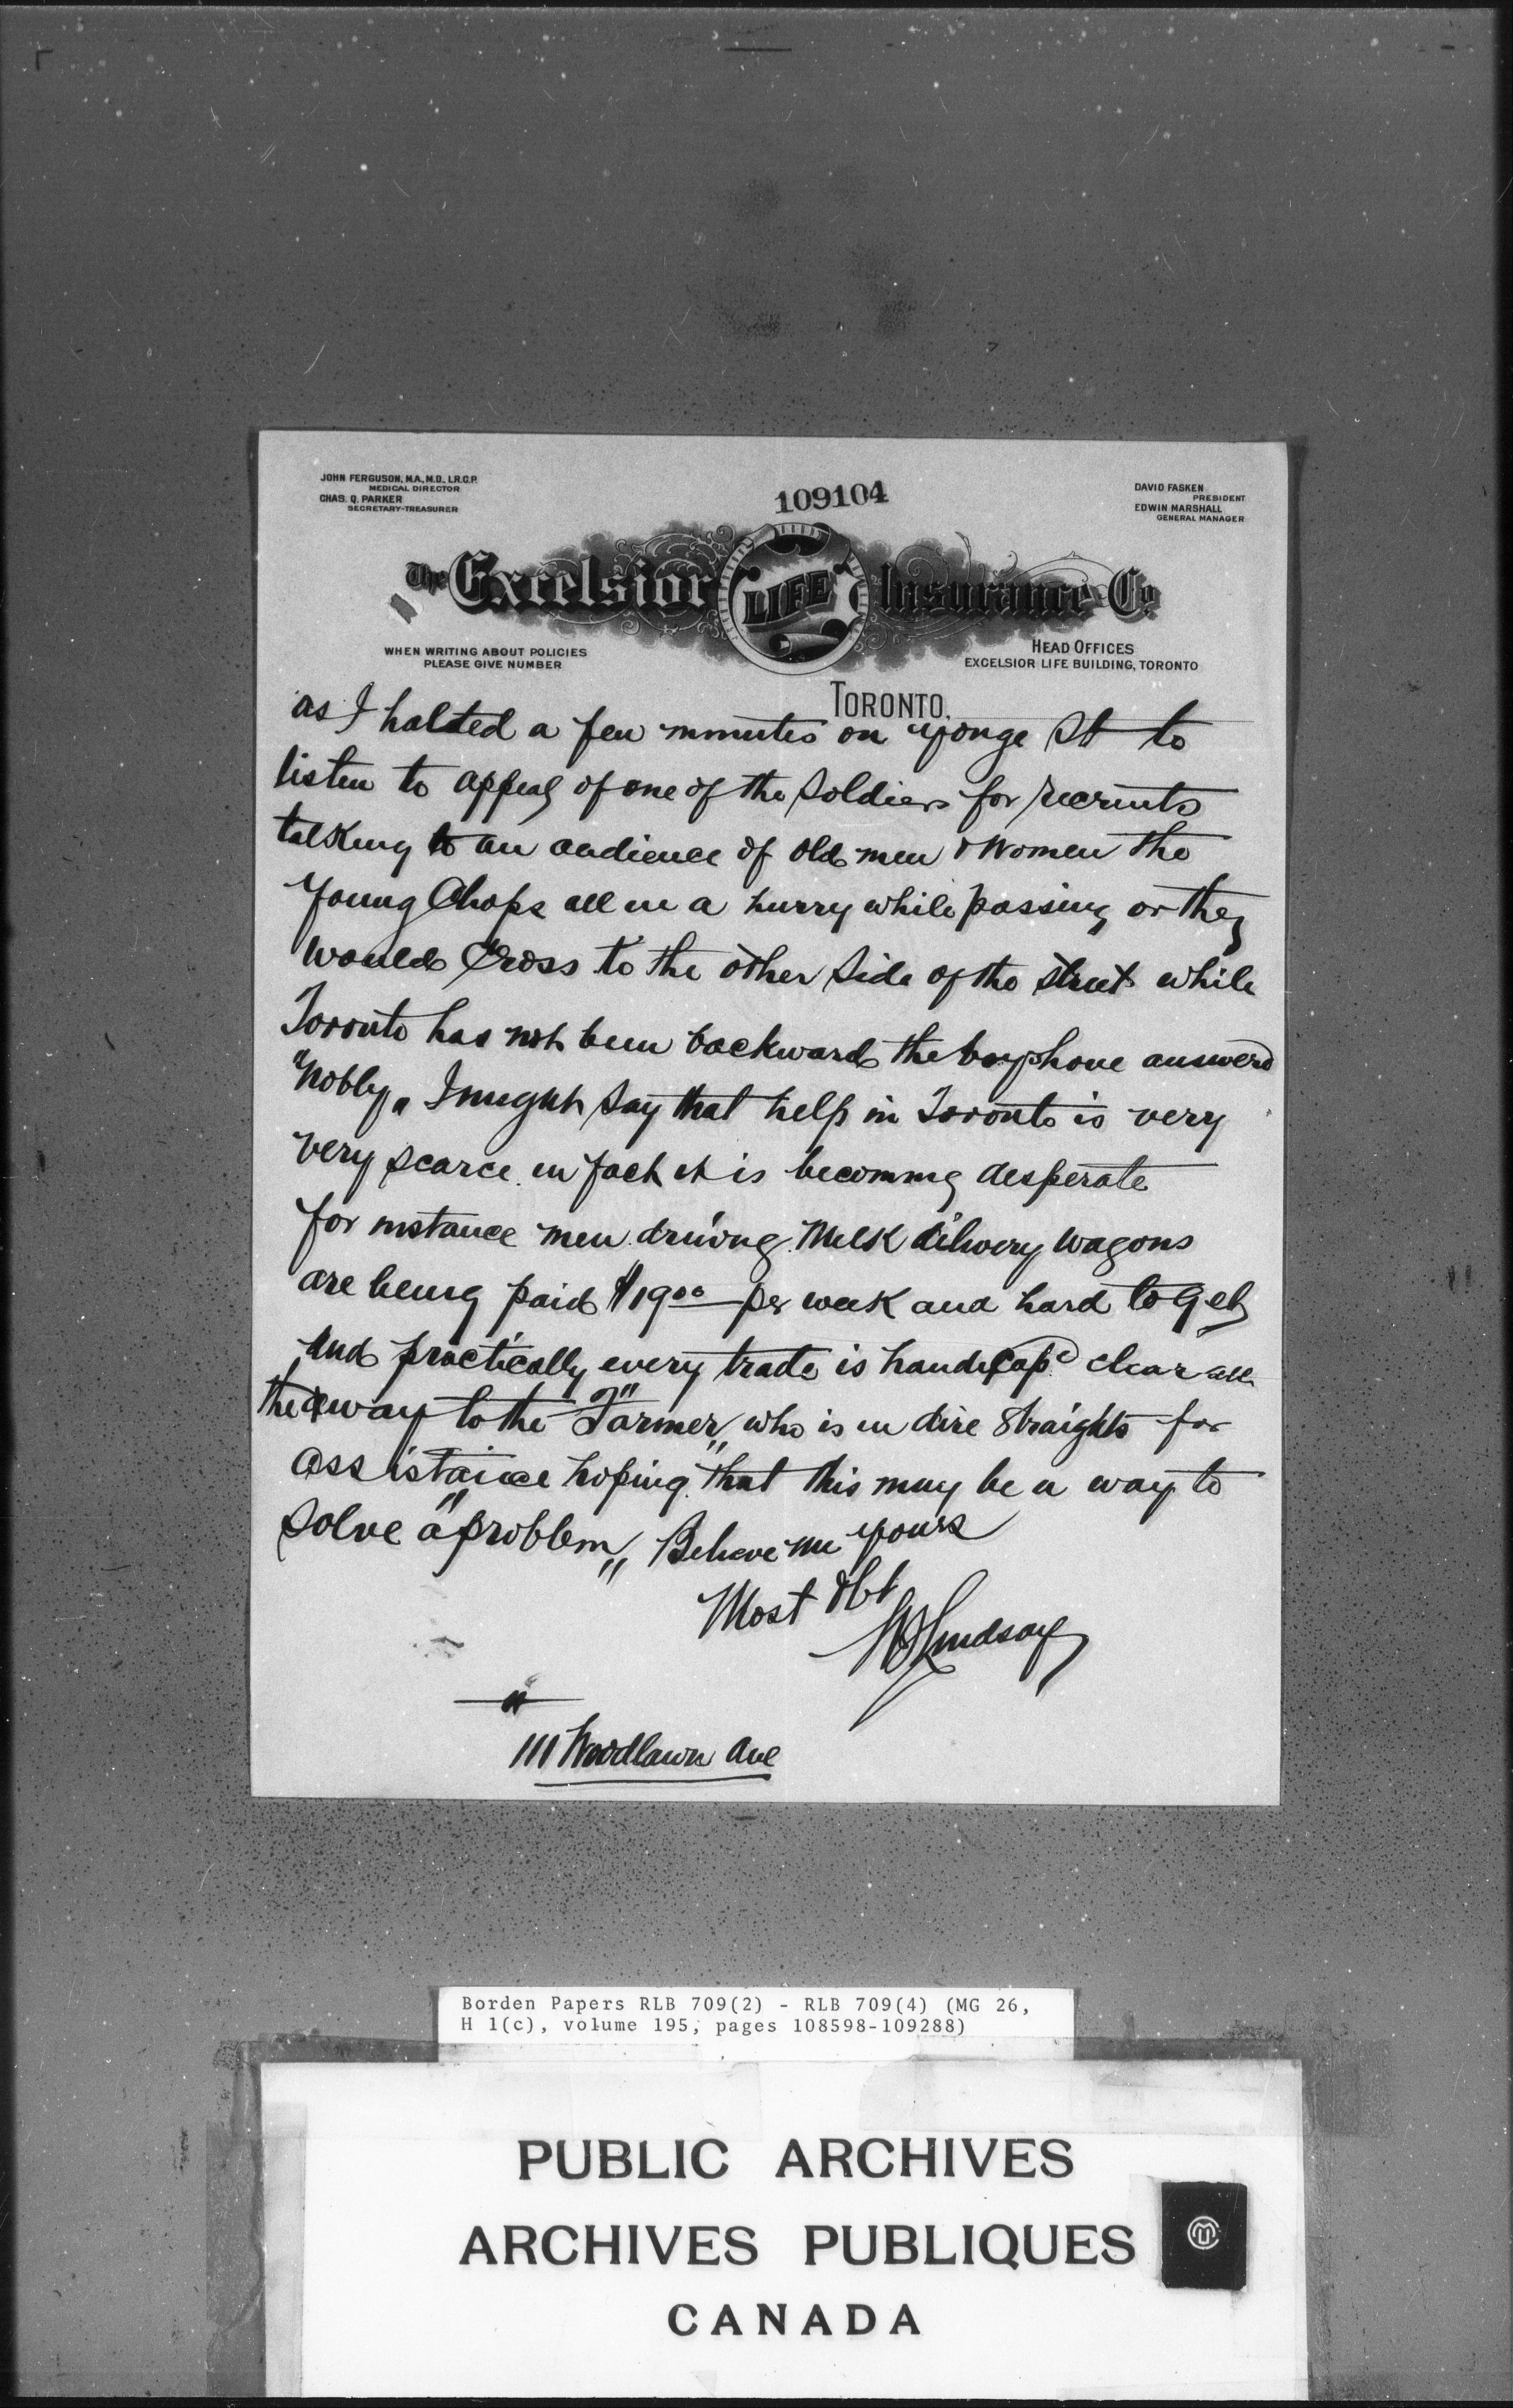 JOHN FERGUSON, M.A., M.D., L.R.C.P.
MEDICAL DIRECTOR
CHAS. Q. PARKER
SECRETARY-TREASURER
109104
DAVID FASKEN
PRESIDENT
EDWIN MARSHALL
GENERAL MANAGER
The Excelsior LIFE Insurance Co
WHEN WRITING ABOUT POLICIES
PLEASE GIVE NUMBER
HEAD OFFICES
EXCELSIOR LIFE BUILDING, TORONTO
TORONTO,
as I halted a few minutes on Yonge St to
listen to appeal of one of the Soldiers for recruits
talking to an audience of old men & Women the
Young Chaps all in a hurry while passing or they
would Cross to the other Side of the street while
Toronto has not been backward the boys have answerd
"Nobly" I might Say that help in Toronto is very
very scarce in fact it is becoming desperate
for instance men driving Milk delivery wagons
are being paid $19.00 per week and hard to get
And practically every trade is handicapd clear all
the way to the "Farmer" who is in dire Straights for
assistance hoping that this may be a way to
Solve "a problem" Believe me Yours
Most Obt
Lindsay
111 Woodlawn Ave
Borden Papers RLB 709(2) - RLB 709(4) (MG 26,
H 1(c), volume 195, pages 108598-109288)
PUBLIC ARCHIVES
ARCHIVES PUBLIQUES
CANADA